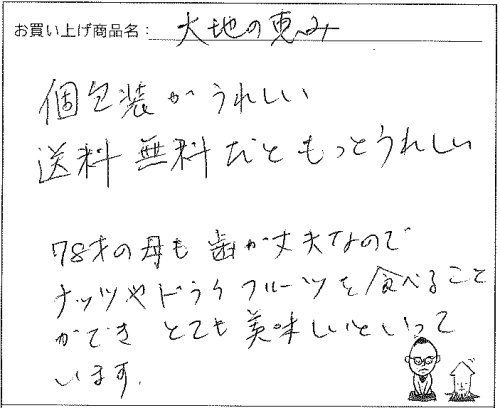 お買い上げ商品名：大地の恵み
個包装がうれしい
送料無料だともっとうれしい
78才の母も歯が丈夫なので
ナッツやドライフルーツを食べること
ができ とても美味しいといって
います.